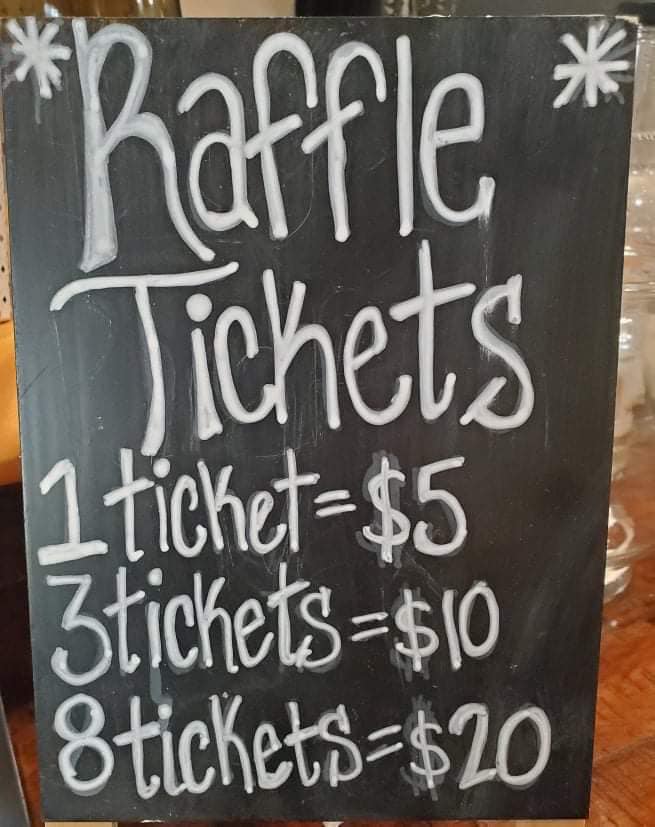 *Raffle*
Tickets
1 ticket=$5
3tickets=$10
8tickets=$20